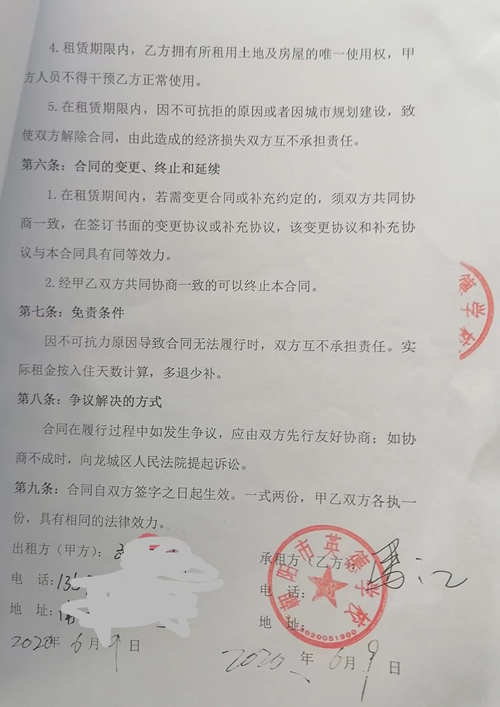 4.租赁期限内，乙方拥有所租用土地及房屋的唯一使用权，甲
方人员不得干预乙方正常使用。
5.在租赁期限内，因不可抗拒的原因或者因城市规划建设，致
使双方解除合同，由此造成的经济损失双方互不承担责任。
第六条：合同的变更、终止和延续
1.在租赁期间内，若需变更合同或补充约定的，须双方共同协
商一致，在签订书面的变更协议或补充协议，该变更协议和补充协
议与本合同具有同等效力。
2.经甲乙双方共同协商一致的可以终止本合同。
德学校
第七条：免责条件
因不可抗力原因导致合同无法履行时，双方互不承担责任。实
际租金按入住天数计算，多退少补。
第八条：争议解决的方式
合同在履行过程中如发生争议，应由双方先行友好协商；如协
商不成时，向龙城区人民法院提起诉讼。
第九条：合同自双方签字之日起生效。一式两份，甲乙双方各执一
份，具有相同的法律效力。
出租方（甲方）：
承租方（乙方）：
电 话：13
电 话：
地 址：
地 址：
朝阳市英德学校
2020年6月9日
2020年6月9日